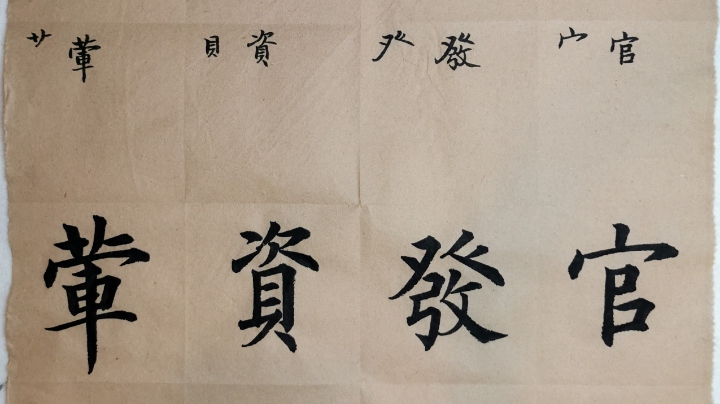 艹 葷 貝 資 癶 發 宀 官
葷 資 發 官